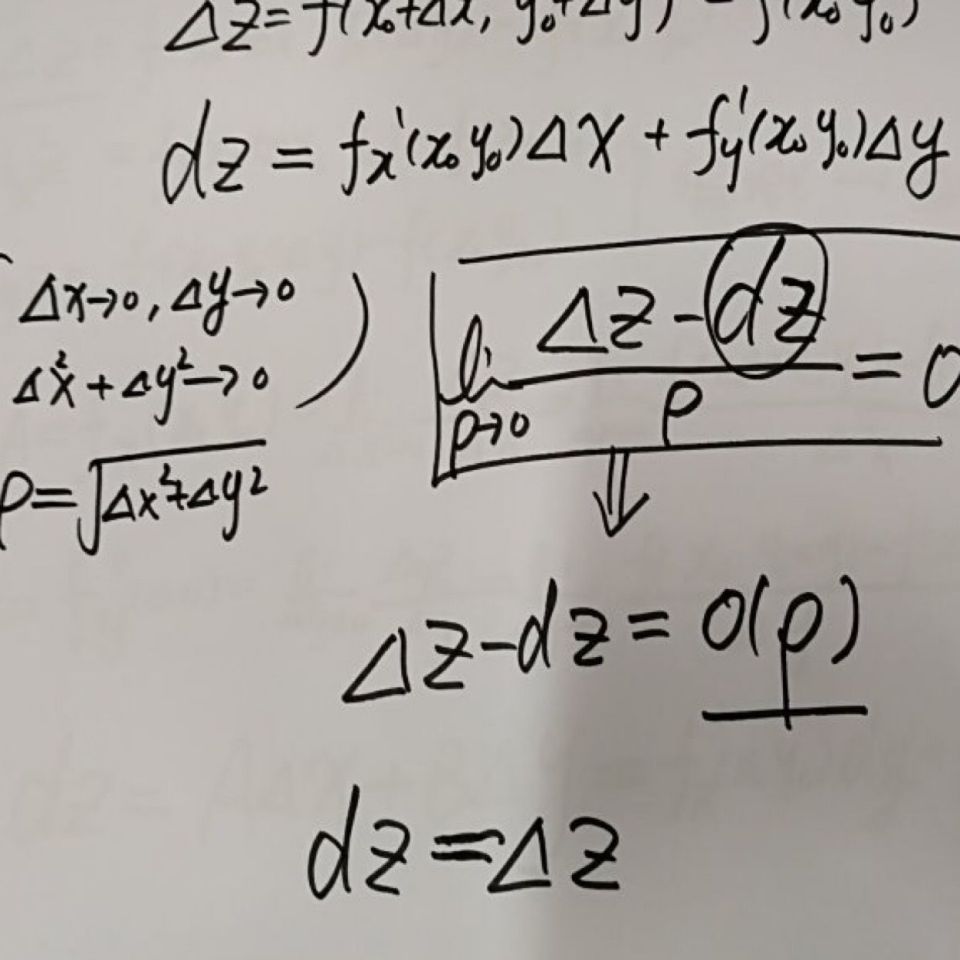 Δz=f(x₀+Δx, y₀+Δy)-f(x₀ y₀)
dz = fx'(x₀ y₀)Δx + fy'(x₀ y₀)Δy
Δx→0, Δy→0
Δ²x + Δy²→0
ρ=√(Δx²+Δy²)
li ρ→0 (Δz-dz)/ρ = 0
⇓
Δz-dz = o(ρ)
dz=Δz